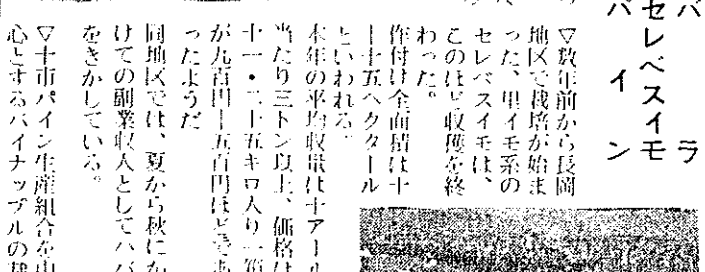 バラ
セレベスイモ
パイン
▽数年前から長岡
地区で栽培が始ま
った、里イモ系の
セレベスイモは、
このほど収穫を終
わった。
作付け全面積は十
―十五ヘクタール
といわれる。
本年の平均収量は十アール
当たり三トン以上、価格は
十一・二十五キロ入り一箱
が九百円―五百円ほどであ
ったようだ
同地区では、夏から秋にか
けての副業収入としてハバ
をきかしている。
▽十市パイン生産組合を中
心とするパイナップルの栽